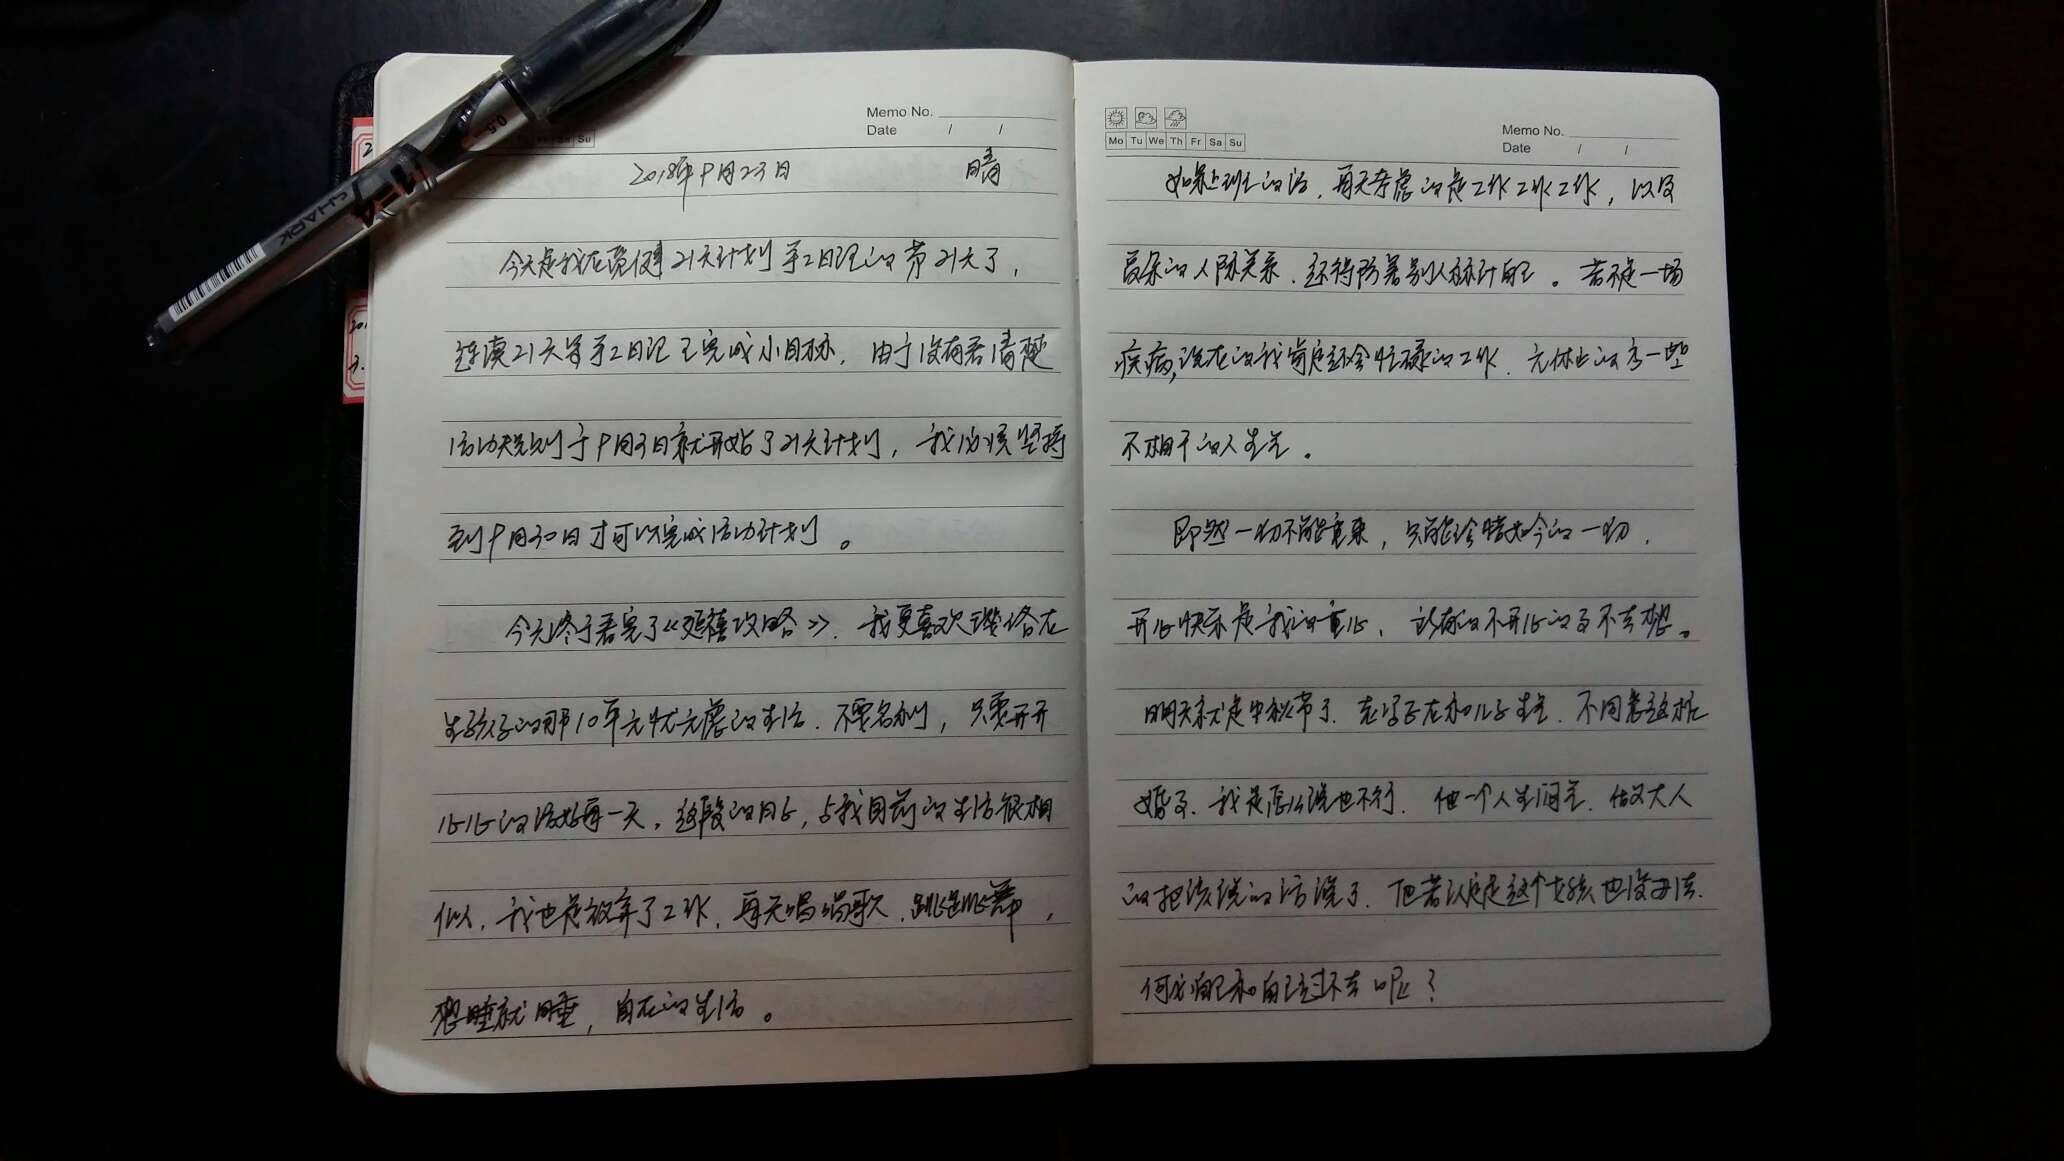 SHARK
0.5
Su
Memo No.
Date / /
2018年9月23日 晴
今天是我在 21天计划手工日记的第21天了，
连续21天写手工日记已完成小目标，由于没有看清楚
活动规则于9月3日就开始了21天计划，我必须坚持
到9月30日才可以完成活动计划。
今天终于看完了《延禧攻略》，我更喜欢璎珞在
生孩子的那10年无忧无虑的生活，不要名利，只要开开
心心的活好每一天，这段的日子，与我目前的生活很相
似，我也是放弃了工作，每天唱唱歌，跳跳舞，
想睡就睡，自在的生活。
Mo Tu We Th Fr Sa Su
Memo No.
Date / /
如果上班的话，每天考虑的是工作工作工作，以及
复杂的人际关系，还得防着别人算计自己。若不是一场
疾病，现在的我肯定还会忙碌的工作，无休止的为一些
不相干的人生气。
即然一切不能重来，只能珍惜如今的一切，
开心快乐是我的重心，该有的不开心的事不去想。
明天就是中秋节了，老公还在和儿子生气，不同意这桩
婚事，我是怎么说也不行，他一个人生闷气，做父大人
的把该说的话说了，但若认定是这个女孩也没办法，
何必自己和自己过不去呢？